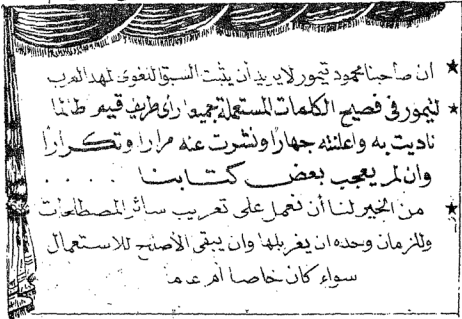 ان صاحبنا محمود تيمور لا يريد أن يثبت السبق اللغوى لمهد العرب
لتيمور فى فصيح الكلمات المستعملة جميعها رأى طريف قيم طالما
ناديت به واعلنته جهارا ونشرت عنه مرارا وتكرارا
وان لم يعجب بعض كتابنا . . . . .
من الخير لنا أن نعمل على تعريب سائر المصطلحات
وللزمان وحده ان يغربلها وان يبقى الأصلح للاستعمال
سواء كان خاصا أم عـاما